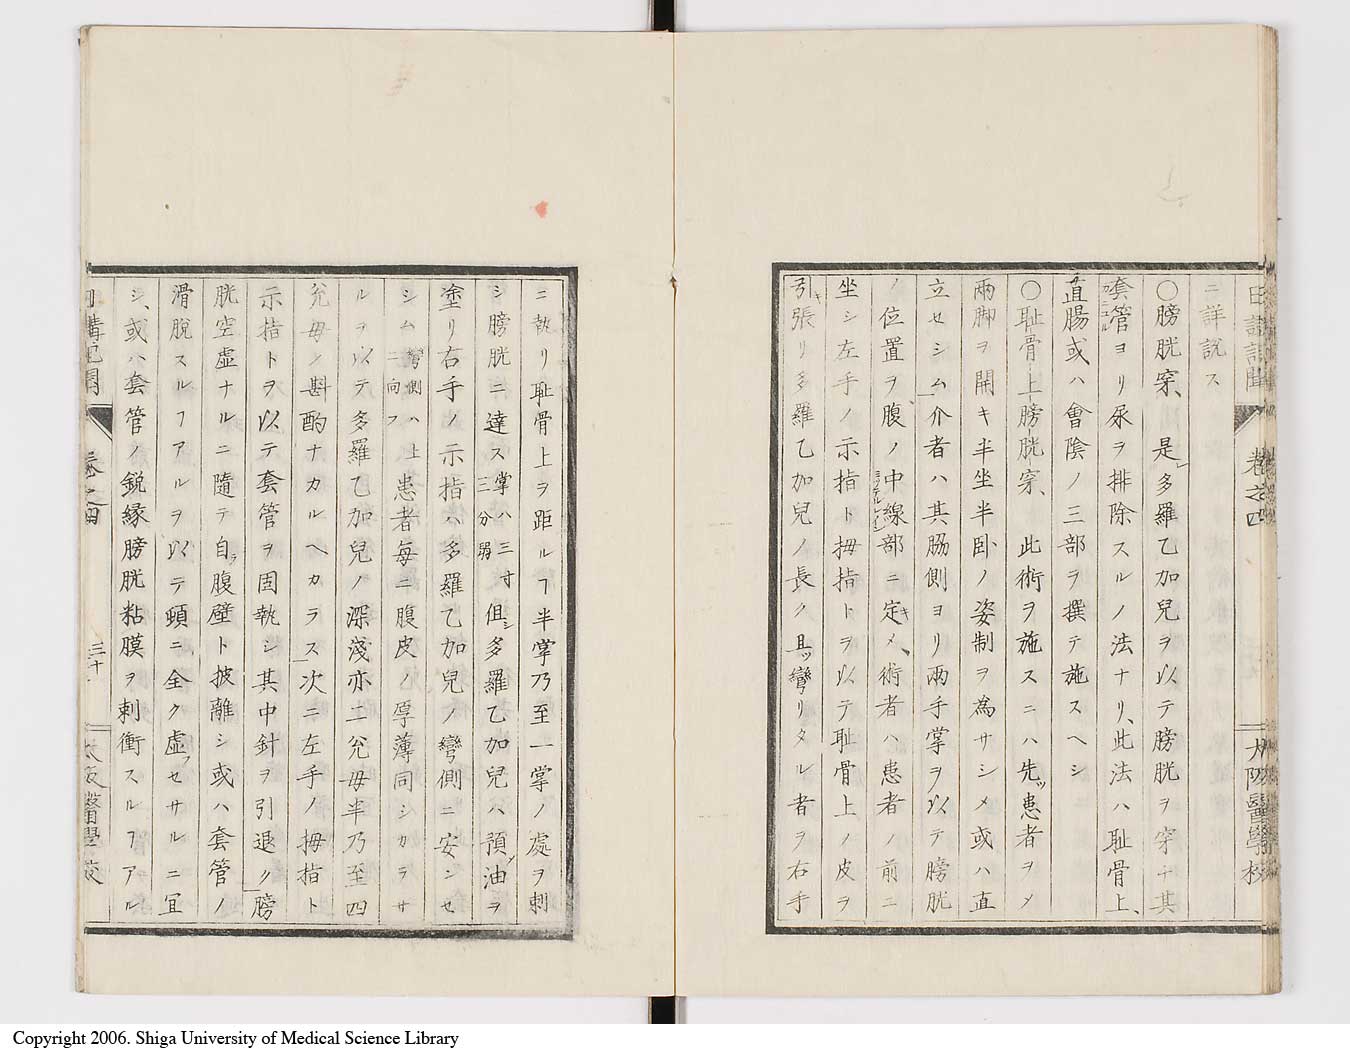 日講記聞 卷之四 大阪醫學校
ニ詳説ス
〇膀胱穿、是多羅乙加兒ヲ以テ膀胱ヲ穿チ其
套管ヨリ尿ヲ排除スルノ法ナリ、此法ハ耻骨上、
直腸或ハ會陰ノ三部ヲ撰テ施スヘシ
〇耻骨上膀胱穿、此術ヲ施スニハ先ッ患者ヲメ
兩脚ヲ開キ半坐半卧ノ姿制ヲ為サシメ或ハ直
立セシム介者ハ其膓側ヨリ兩手掌ヲ以テ膀胱
ノ位置ヲ腹ノ中線部ニ定キメ、術者ハ患者ノ前ニ
坐シ左手ノ示指ト拇指トヲ以テ耻骨上ノ皮ヲ
引キ張リ多羅乙加兒ノ長ク且ッ彎リタル者ヲ右手
ニ執リ耻骨上ヲ距ルヿ半掌乃至一掌ノ處ヲ刺
シ膀胱ニ達ス掌ハ三寸三分弱但シ多羅乙加兒ハ預メ油ヲ
塗リ右手ノ示指ハ多羅乙加兒ノ彎側ニ安ンセ
シム彎側ハ上ニ向フ患者毎ニ腹皮ノ厚薄同シカラサ
ルヲ以テ多羅乙加兒ノ深淺亦二兊毋半乃至四
兊毋ノ斟酌ナカルヘカラス次ニ左手ノ拇指ト
示指トヲ以テ套管ヲ固執シ其中針ヲ引退ク膀
胱空虚ナルニ隨テ自ラ腹壁ト披離シ或ハ套管ノ
滑脱スルヿアルヲ以テ頓ニ全ク虚セサルニ冝
シ、或ハ套管ノ鋭縁膀胱粘膜ヲ刺衝スルヿアル
日講記聞 卷之四 三十 大阪醫學校
Copyright 2006. Shiga University of Medical Science Library